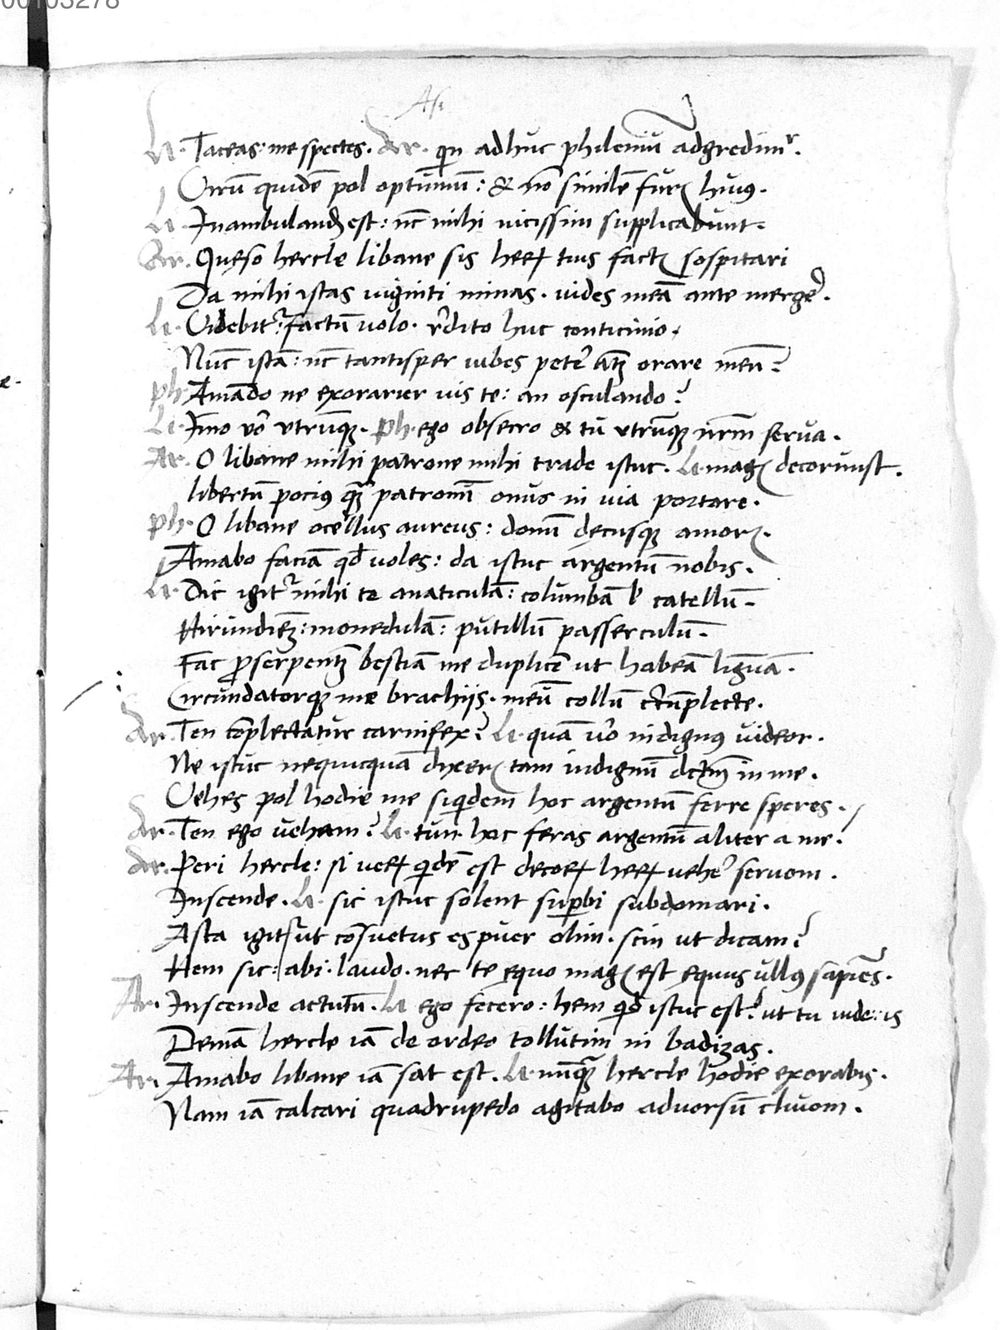 00103278
Asi
Li. Taceas: me spectes. Ar. quī adhuc phileniū adgredimʳ.
Virū quidē pol optumum: & nō similē furꝭ huiꝰ.
Li. Inambulandū est: nc̄ mihi uicissim supplicabunt.
Ar. Queso hercle libane sis herꝵ tuis factꝭ sospitari
Da mihi istas uiginti minas. uides meā ante mergē.
Li. Videbitʳ: factū uolo. rēdito huc conticinio.
Nūc istā: nc̄ tantisper iubes petē atqꝫ orare meū?
Ph. Amādo ne exorarier uis te: an osculando?
Li. Imo uō utrūqꝫ. Ph. ego obsecro & tū utrūqꝫ nr̄m serua.
Ar. O libane mihi patrone mihi trade istuc. Li. magꝭ decorum̄st.
libertū pocius qꝫ̄ patronū onus in uia portare.
Ph. O libane ocellus aureus: donū decusqꝫ amorꝭ.
Amabo faciā qd̄ uoles: da istuc argentū nobis.
Li. Dic igitʳ mihi te anaticulā: columbā l̄ catellū.
Hirundinē: monedulā: putillū passerculū.
Fac ꝓserpentē bestiā me duplicē ut habeā liguā.
Circūndatorqꝫ me brachijs. meū collū cūplecte.
Ar. Ten cōplectatur carnifex? Li. quā uō indignꝰ uideor.
Ne istuc nequicquā dixerꝭ tam indignū dctūm in me.
Vehes pol hodie me siqidem hoc argentū ferre speres.
Ar. Ten ego ueham? Li. tun hoc feras argentū aliter a me.
Ar. Peri hercle: si uerꝵ qidē est decorꝵ herꝵ uehē seruom.
Inscende. Li. sic istuc solent suꝑbi subdomari.
Asta igitʳ ut cōsuetus es puer olim. scin ut dicam?
Hem sic: abi. laudo. nec te equo magꝭ est equus ullꝰ sapiēs.
Ar. Inscende actutū. Li. ego fecero: hem qd̄ istuc est? ut tu incedis
Demā hercle iā de ordeo tollutim ni badizas.
Ar. Amabo libane iā sat est. Li. nūqꝫ̄ hercle hodie exorabis.
Nam iā calcari quadrupedo agitabo aduorsū cliuom.